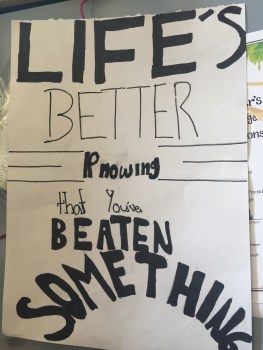 LIFE'S
BETTER
Knowing
that You've
BEATEN
SOMETHING